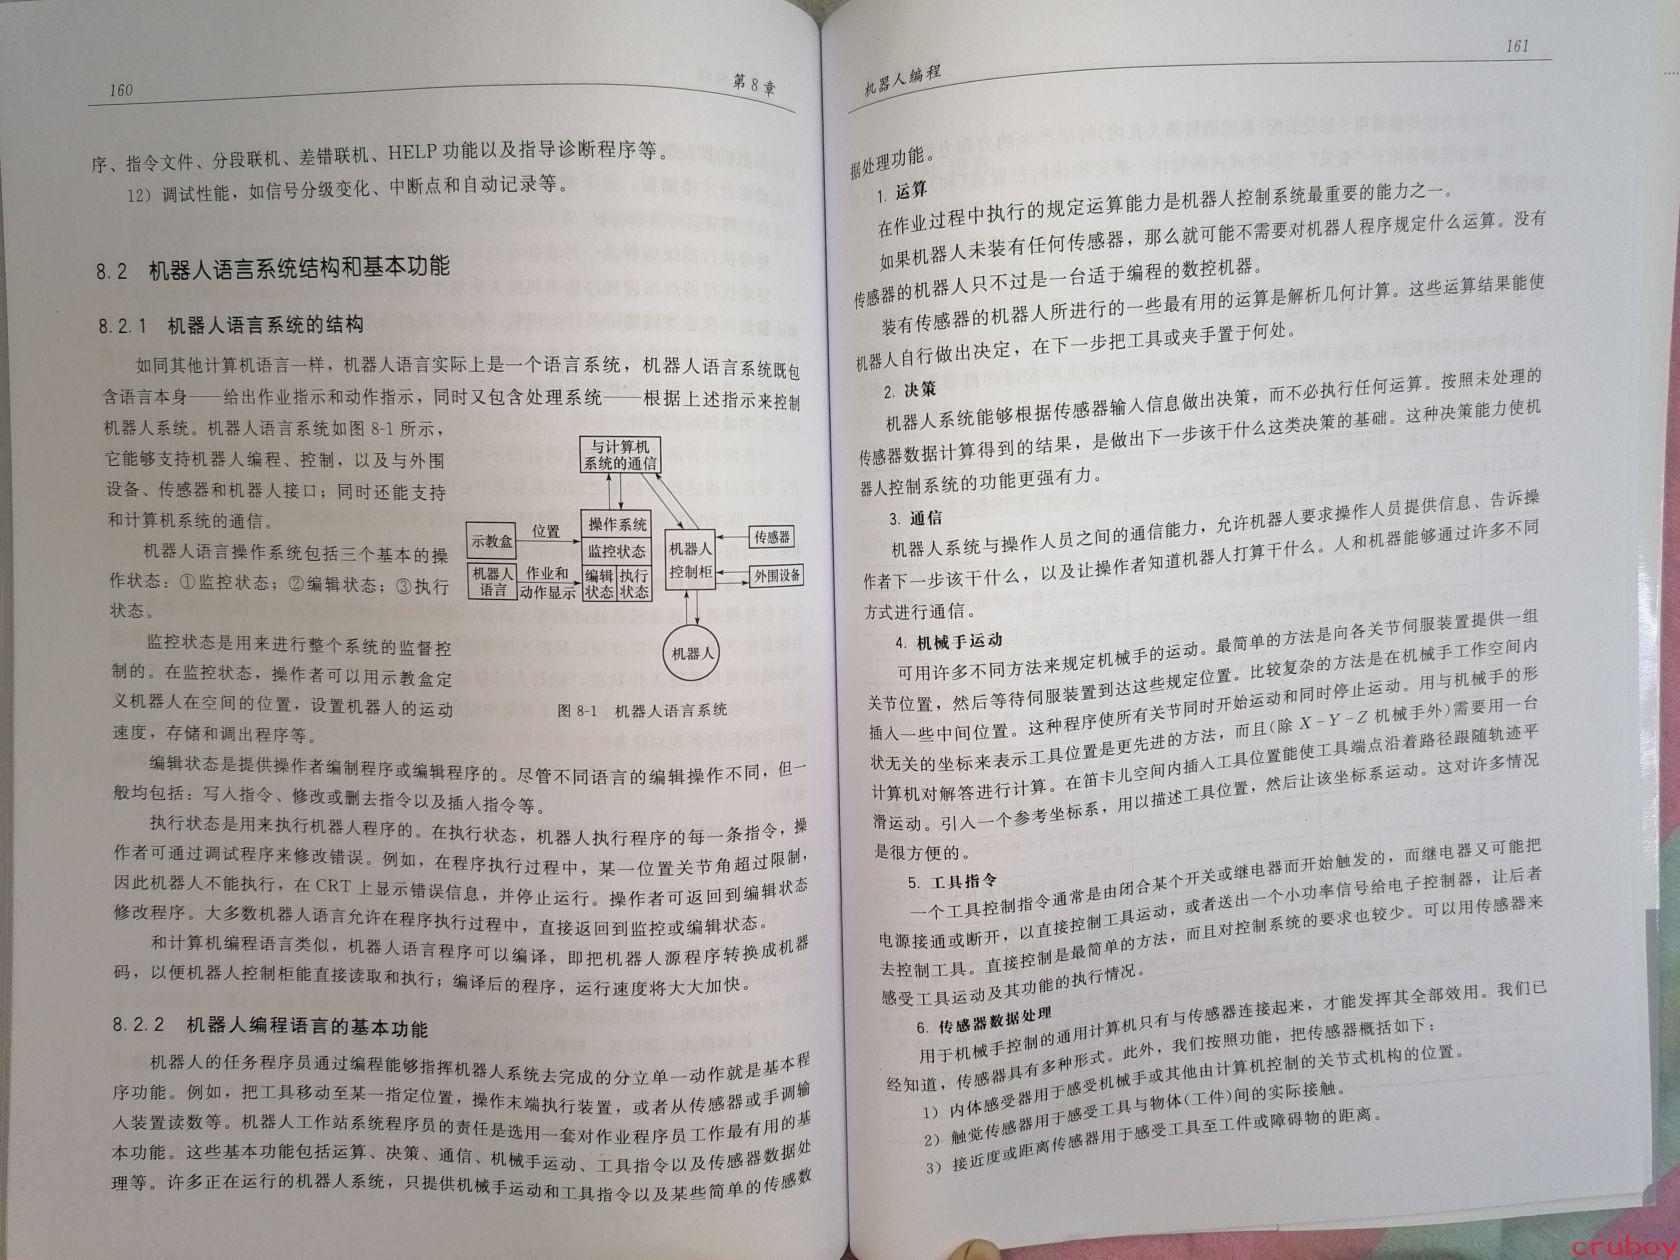 160
第8章
序、指令文件、分段联机、差错联机、HELP 功能以及指导诊断程序等。
12）调试性能，如信号分级变化、中断点和自动记录等。
8.2 机器人语言系统结构和基本功能
8.2.1 机器人语言系统的结构
如同其他计算机语言一样，机器人语言实际上是一个语言系统，机器人语言系统既包
含语言本身——给出作业指示和动作指示，同时又包含处理系统——根据上述指示来控制
机器人系统。机器人语言系统如图 8-1 所示，
它能够支持机器人编程、控制，以及与外围
设备、传感器和机器人接口；同时还能支持
和计算机系统的通信。
机器人语言操作系统包括三个基本的操
作状态：①监控状态；②编辑状态；③执行
状态。
监控状态是用来进行整个系统的监督控
制的。在监控状态，操作者可以用示教盒定
义机器人在空间的位置，设置机器人的运动
速度，存储和调出程序等。
与计算机
系统的通信
示教盒
位置
操作系统
监控状态
机器人
语言
作业和
动作显示
编辑
状态
执行
状态
机器人
控制柜
传感器
外围设备
机器人
图 8-1 机器人语言系统
编辑状态是提供操作者编制程序或编辑程序的。尽管不同语言的编辑操作不同，但一
般均包括：写入指令、修改或删去指令以及插入指令等。
执行状态是用来执行机器人程序的。在执行状态，机器人执行程序的每一条指令，操
作者可通过调试程序来修改错误。例如，在程序执行过程中，某一位置关节角超过限制，
因此机器人不能执行，在 CRT 上显示错误信息，并停止运行。操作者可返回到编辑状态
修改程序。大多数机器人语言允许在程序执行过程中，直接返回到监控或编辑状态。
和计算机编程语言类似，机器人语言程序可以编译，即把机器人源程序转换成机器
码，以便机器人控制柜能直接读取和执行；编译后的程序，运行速度将大大加快。
8.2.2 机器人编程语言的基本功能
机器人的任务程序员通过编程能够指挥机器人系统去完成的分立单一动作就是基本程
序功能。例如，把工具移动至某一指定位置，操作末端执行装置，或者从传感器或手调输
入装置读数等。机器人工作站系统程序员的责任是选用一套对作业程序员工作最有用的基
本功能。这些基本功能包括运算、决策、通信、机械手运动、工具指令以及传感器数据处
理等。许多正在运行的机器人系统，只提供机械手运动和工具指令以及某些简单的传感数
机器人编程
161
据处理功能。
1. 运算
在作业过程中执行的规定运算能力是机器人控制系统最重要的能力之一。
如果机器人未装有任何传感器，那么就可能不需要对机器人程序规定什么运算。没有
传感器的机器人只不过是一台适于编程的数控机器。
装有传感器的机器人所进行的一些最有用的运算是解析几何计算。这些运算结果能使
机器人自行做出决定，在下一步把工具或夹手置于何处。
2. 决策
机器人系统能够根据传感器输入信息做出决策，而不必执行任何运算。按照未处理的
传感器数据计算得到的结果，是做出下一步该干什么这类决策的基础。这种决策能力使机
器人控制系统的功能更强有力。
3. 通信
机器人系统与操作人员之间的通信能力，允许机器人要求操作人员提供信息、告诉操
作者下一步该干什么，以及让操作者知道机器人打算干什么。人和机器能够通过许多不同
方式进行通信。
4. 机械手运动
可用许多不同方法来规定机械手的运动。最简单的方法是向各关节伺服装置提供一组
关节位置，然后等待伺服装置到达这些规定位置。比较复杂的方法是在机械手工作空间内
插入一些中间位置。这种程序使所有关节同时开始运动和同时停止运动。用与机械手的形
状无关的坐标来表示工具位置是更先进的方法，而且(除 X-Y-Z 机械手外)需要用一台
计算机对解答进行计算。在笛卡儿空间内插入工具位置能使工具端点沿着路径跟随轨迹平
滑运动。引入一个参考坐标系，用以描述工具位置，然后让该坐标系运动。这对许多情况
是很方便的。
5. 工具指令
一个工具控制指令通常是由闭合某个开关或继电器而开始触发的，而继电器又可能把
电源接通或断开，以直接控制工具运动，或者送出一个小功率信号给电子控制器，让后者
去控制工具。直接控制是最简单的方法，而且对控制系统的要求也较少。可以用传感器来
感受工具运动及其功能的执行情况。
6. 传感器数据处理
用于机械手控制的通用计算机只有与传感器连接起来，才能发挥其全部效用。我们已
经知道，传感器具有多种形式。此外，我们按照功能，把传感器概括如下：
1）内体感受器用于感受机械手或其他由计算机控制的关节式机构的位置。
2）触觉传感器用于感受工具与物体(工件)间的实际接触。
3）接近度或距离传感器用于感受工具至工件或障碍物的距离。
cruboy